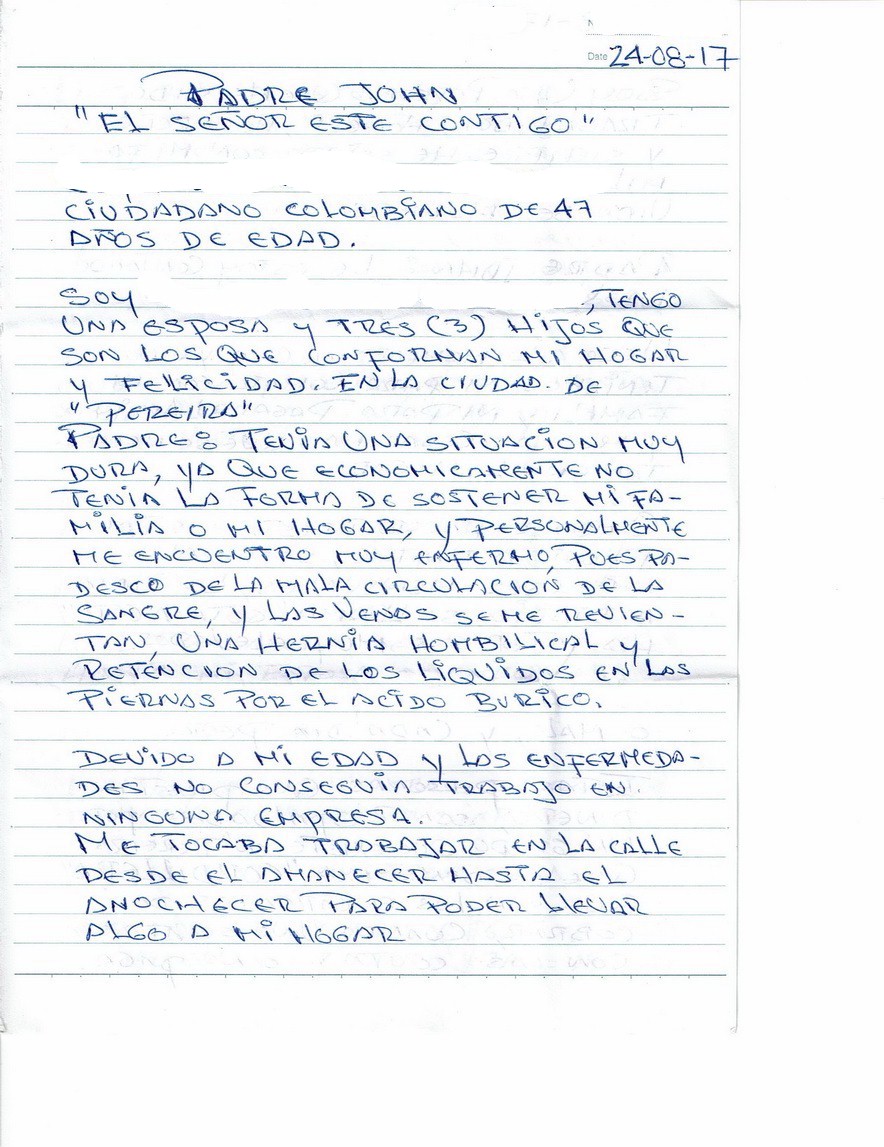 Date 24-08-17
PADRE JOHN
"EL SEÑOR ESTE CONTIGO"
CIUDADANO COLOMBIANO DE 47
AÑOS DE EDAD.
SOY , TENGO
UNA ESPOSA Y TRES (3) HIJOS QUE
SON LOS QUE CONFORMAN MI HOGAR
Y FELICIDAD. EN LA CIUDAD. DE
"PEREIRA"
PADRE: TENIA UNA SITUACION MUY
DURA, YA QUE ECONOMICAMENTE NO
TENIA LA FORMA DE SOSTENER MI FA-
MILIA O MI HOGAR, Y PERSONALMENTE
ME ENCUENTRO MUY ENFERMO, PUES PA-
DESCO DE LA MALA CIRCULACION DE LA
SANGRE, Y LAS VENAS SE ME REVIEN-
TAN, UNA HERNIA HOMBILICAL Y
RETENCION DE LOS LIQUIDOS EN LAS
PIERNAS POR EL ACIDO BURICO.
DEVIDO A MI EDAD Y LAS ENFERMEDA-
DES NO CONSEGUIA TRABAJO EN.
NINGUNA EMPRESA.
ME TOCABA TRABAJAR EN LA CALLE
DESDE EL AMANECER HASTA EL
ANOCHECER PARA PODER LLEVAR
ALGO A MI HOGAR